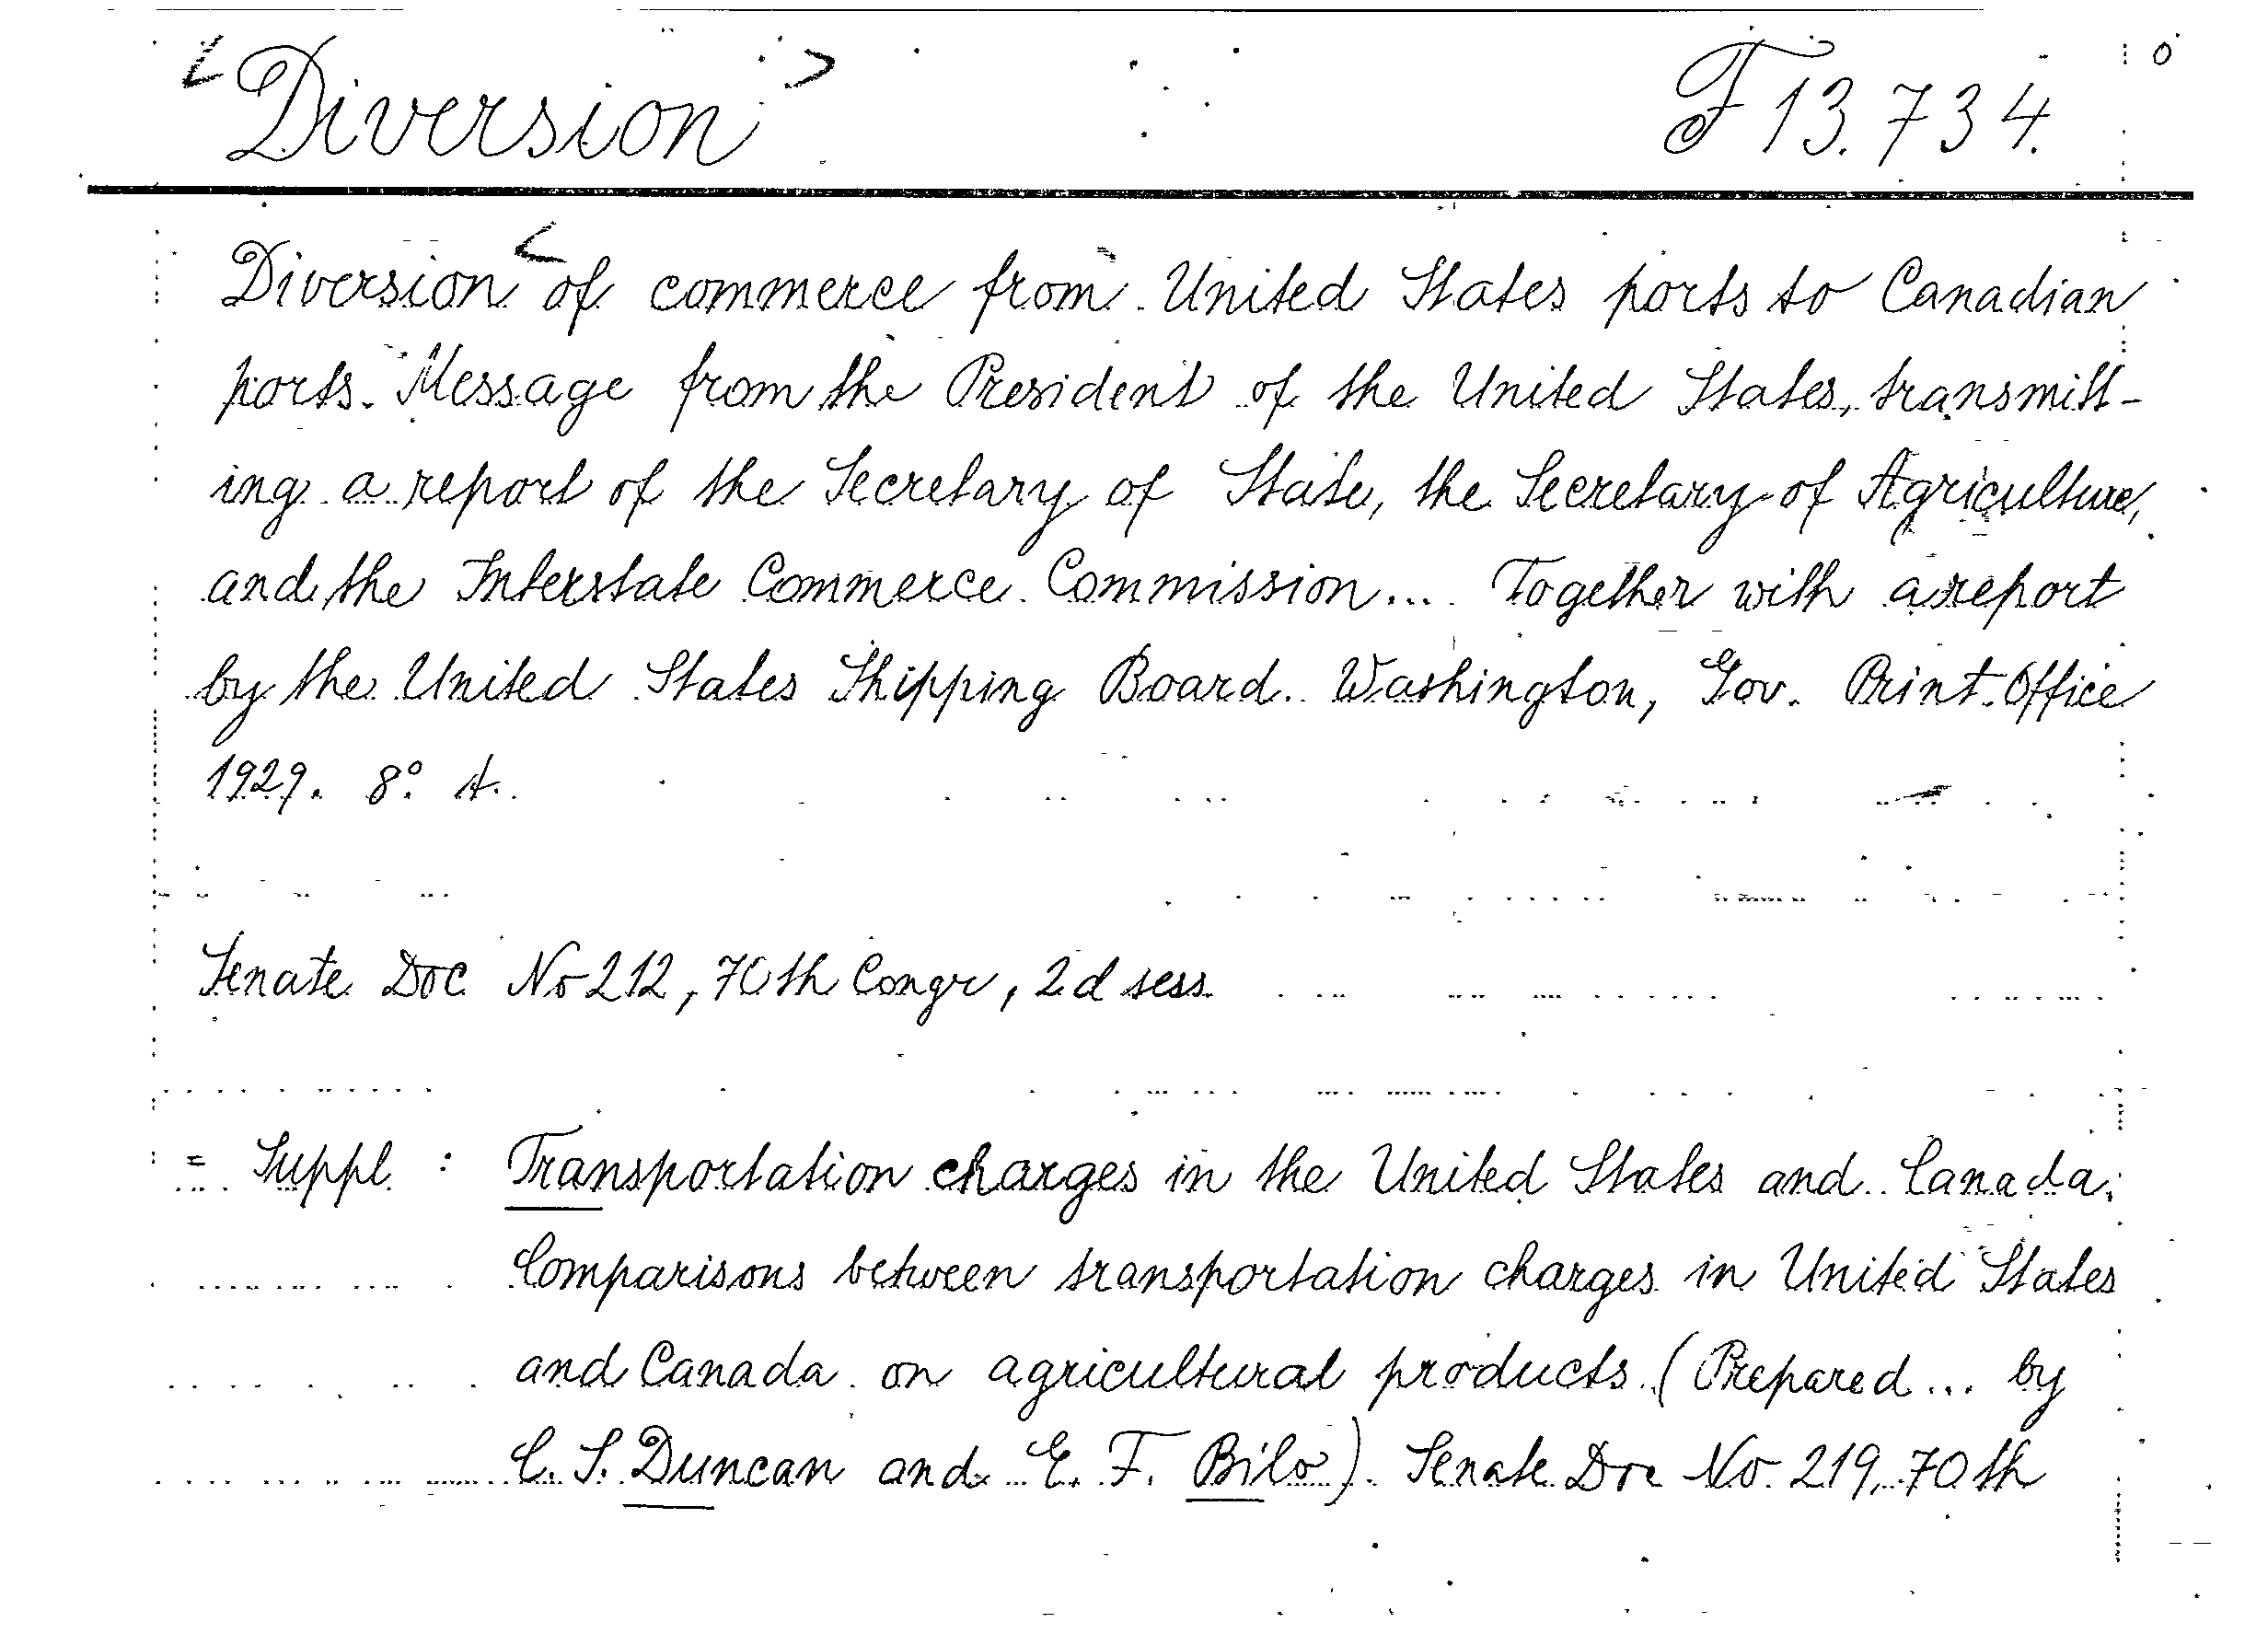 <Diversion> F 13.734.
Diversion < of commerce from United States ports to Canadian
ports. Message from the President of the United States, transmitt-
ing a report of the Secretary of State, the Secretary of Agriculture,
and the Interstate Commerce Commission... Together with a report
by the United States Shipping Board. Washington, Gov. Print. Office
1929. 8° A.
Senate Doc No 212, 70th Congr, 2d sess.
= Suppl : Transportation charges in the United States and Canada.
Comparisons between transportation charges in United States
and Canada on agricultural products. (Prepared... by
C. S. Duncan and E. F. Bilo). Senate Doc No. 219, 70th